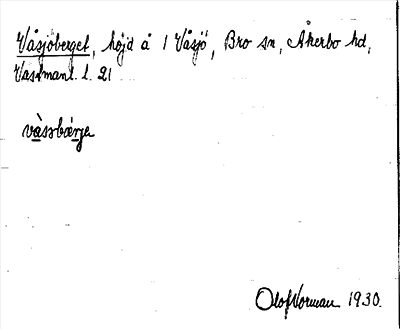 Våsjöberget, höjd å 1 Våsjö, Bro sn, Åkerbo hd,
Västmanl. l. 21
vàssbærja
Olof Vorman 1930.